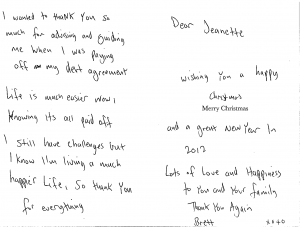 I wanted to thank you so
much for advising and guiding
me when I was paying
off my debt agreement
Life is much easier now,
knowing its all paid off
I still have challenges but
I know I'm living a much
happier life, so thank you
for everything
Dear Jeanette
wishing you a happy
Christmas
Merry Christmas
and a great New Year In
2012
Lots of Love and Happiness
to you and your family
Thank You Again
Brett xoxo